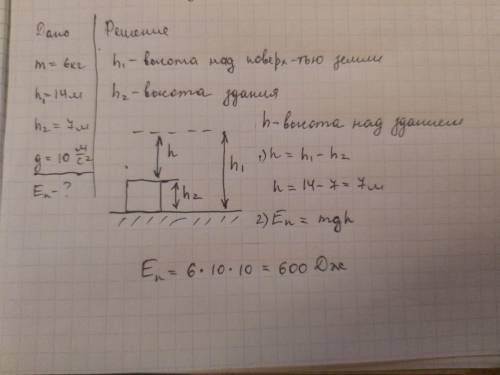 Дано
m = 6кг
h₁=14м
h₂ = 7м
g = 10 м/с²
Eп - ?
Решение
h₁ - высота над поверх-тью земли
h₂ - высота здания
h - высота над зданием
h
h₁
h₂
1) h = h₁ - h₂
h = 14 - 7 = 7м
2) Eп = mgh
Eп = 6·10·10 = 600 Дж